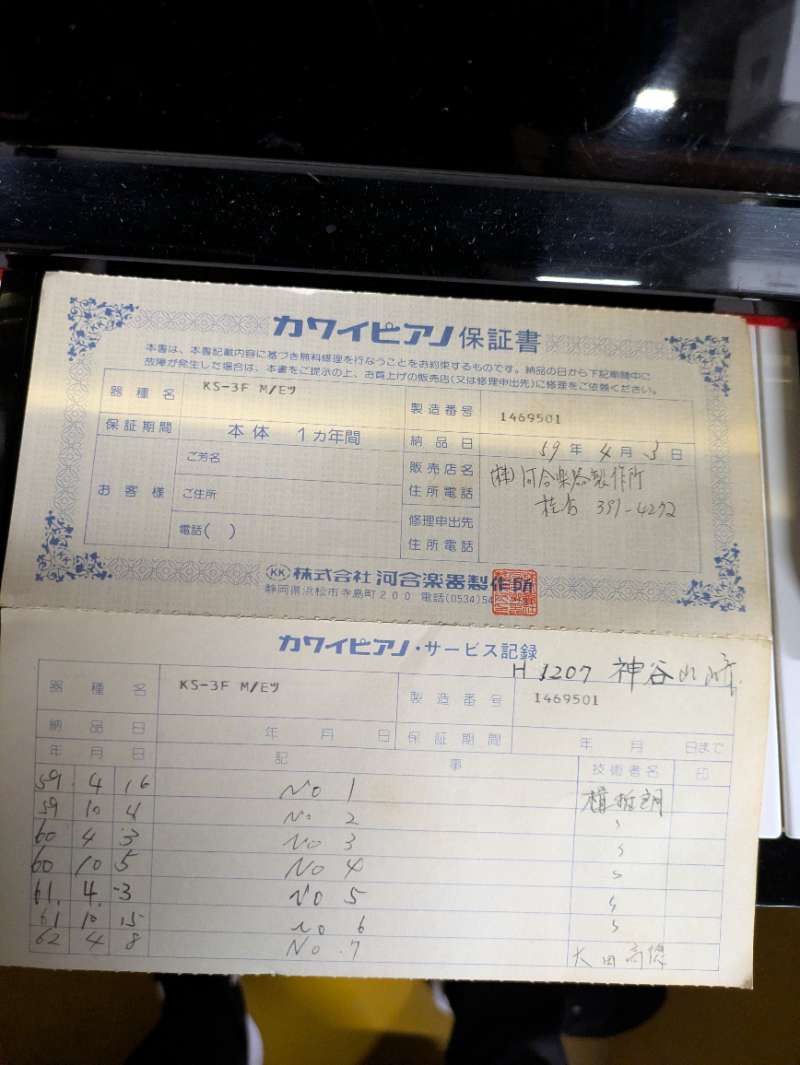 カワイピアノ 保証書
本書は、本書記載内容に基づき無料修理を行なうことをお約束するものです。納品の日から下記期間中に
故障が発生した場合は、本書をご提示の上、お買上げの販売店(又は修理申出先)に修理をご依頼ください。
器種名 KS-3F M/Eツ 製造番号 1469501
保証期間 本体 1カ年間 納品日 59年4月3日
お客様 ご芳名 販売店名 (株)河合楽器製作所
ご住所 住所電話 391-4272
電話( ) 修理申出先
住所電話
KK 株式会社 河合楽器製作所
静岡県浜松市寺島町200 電話(0534)54
カワイピアノ・サービス記録
H 1207 神谷
器種名 KS-3F M/Eツ 製造番号 1469501
納品日 年 月 日 保証期間 年 月 日まで
年 月 日 記事 技術者名 印
59 4 16 No 1
59 10 4 No 2 〃
60 4 3 No 3 〃
60 10 5 No 4 〃
61 4 3 No 5 〃
61 10 15 No 6 〃
62 4 8 No 7 大田